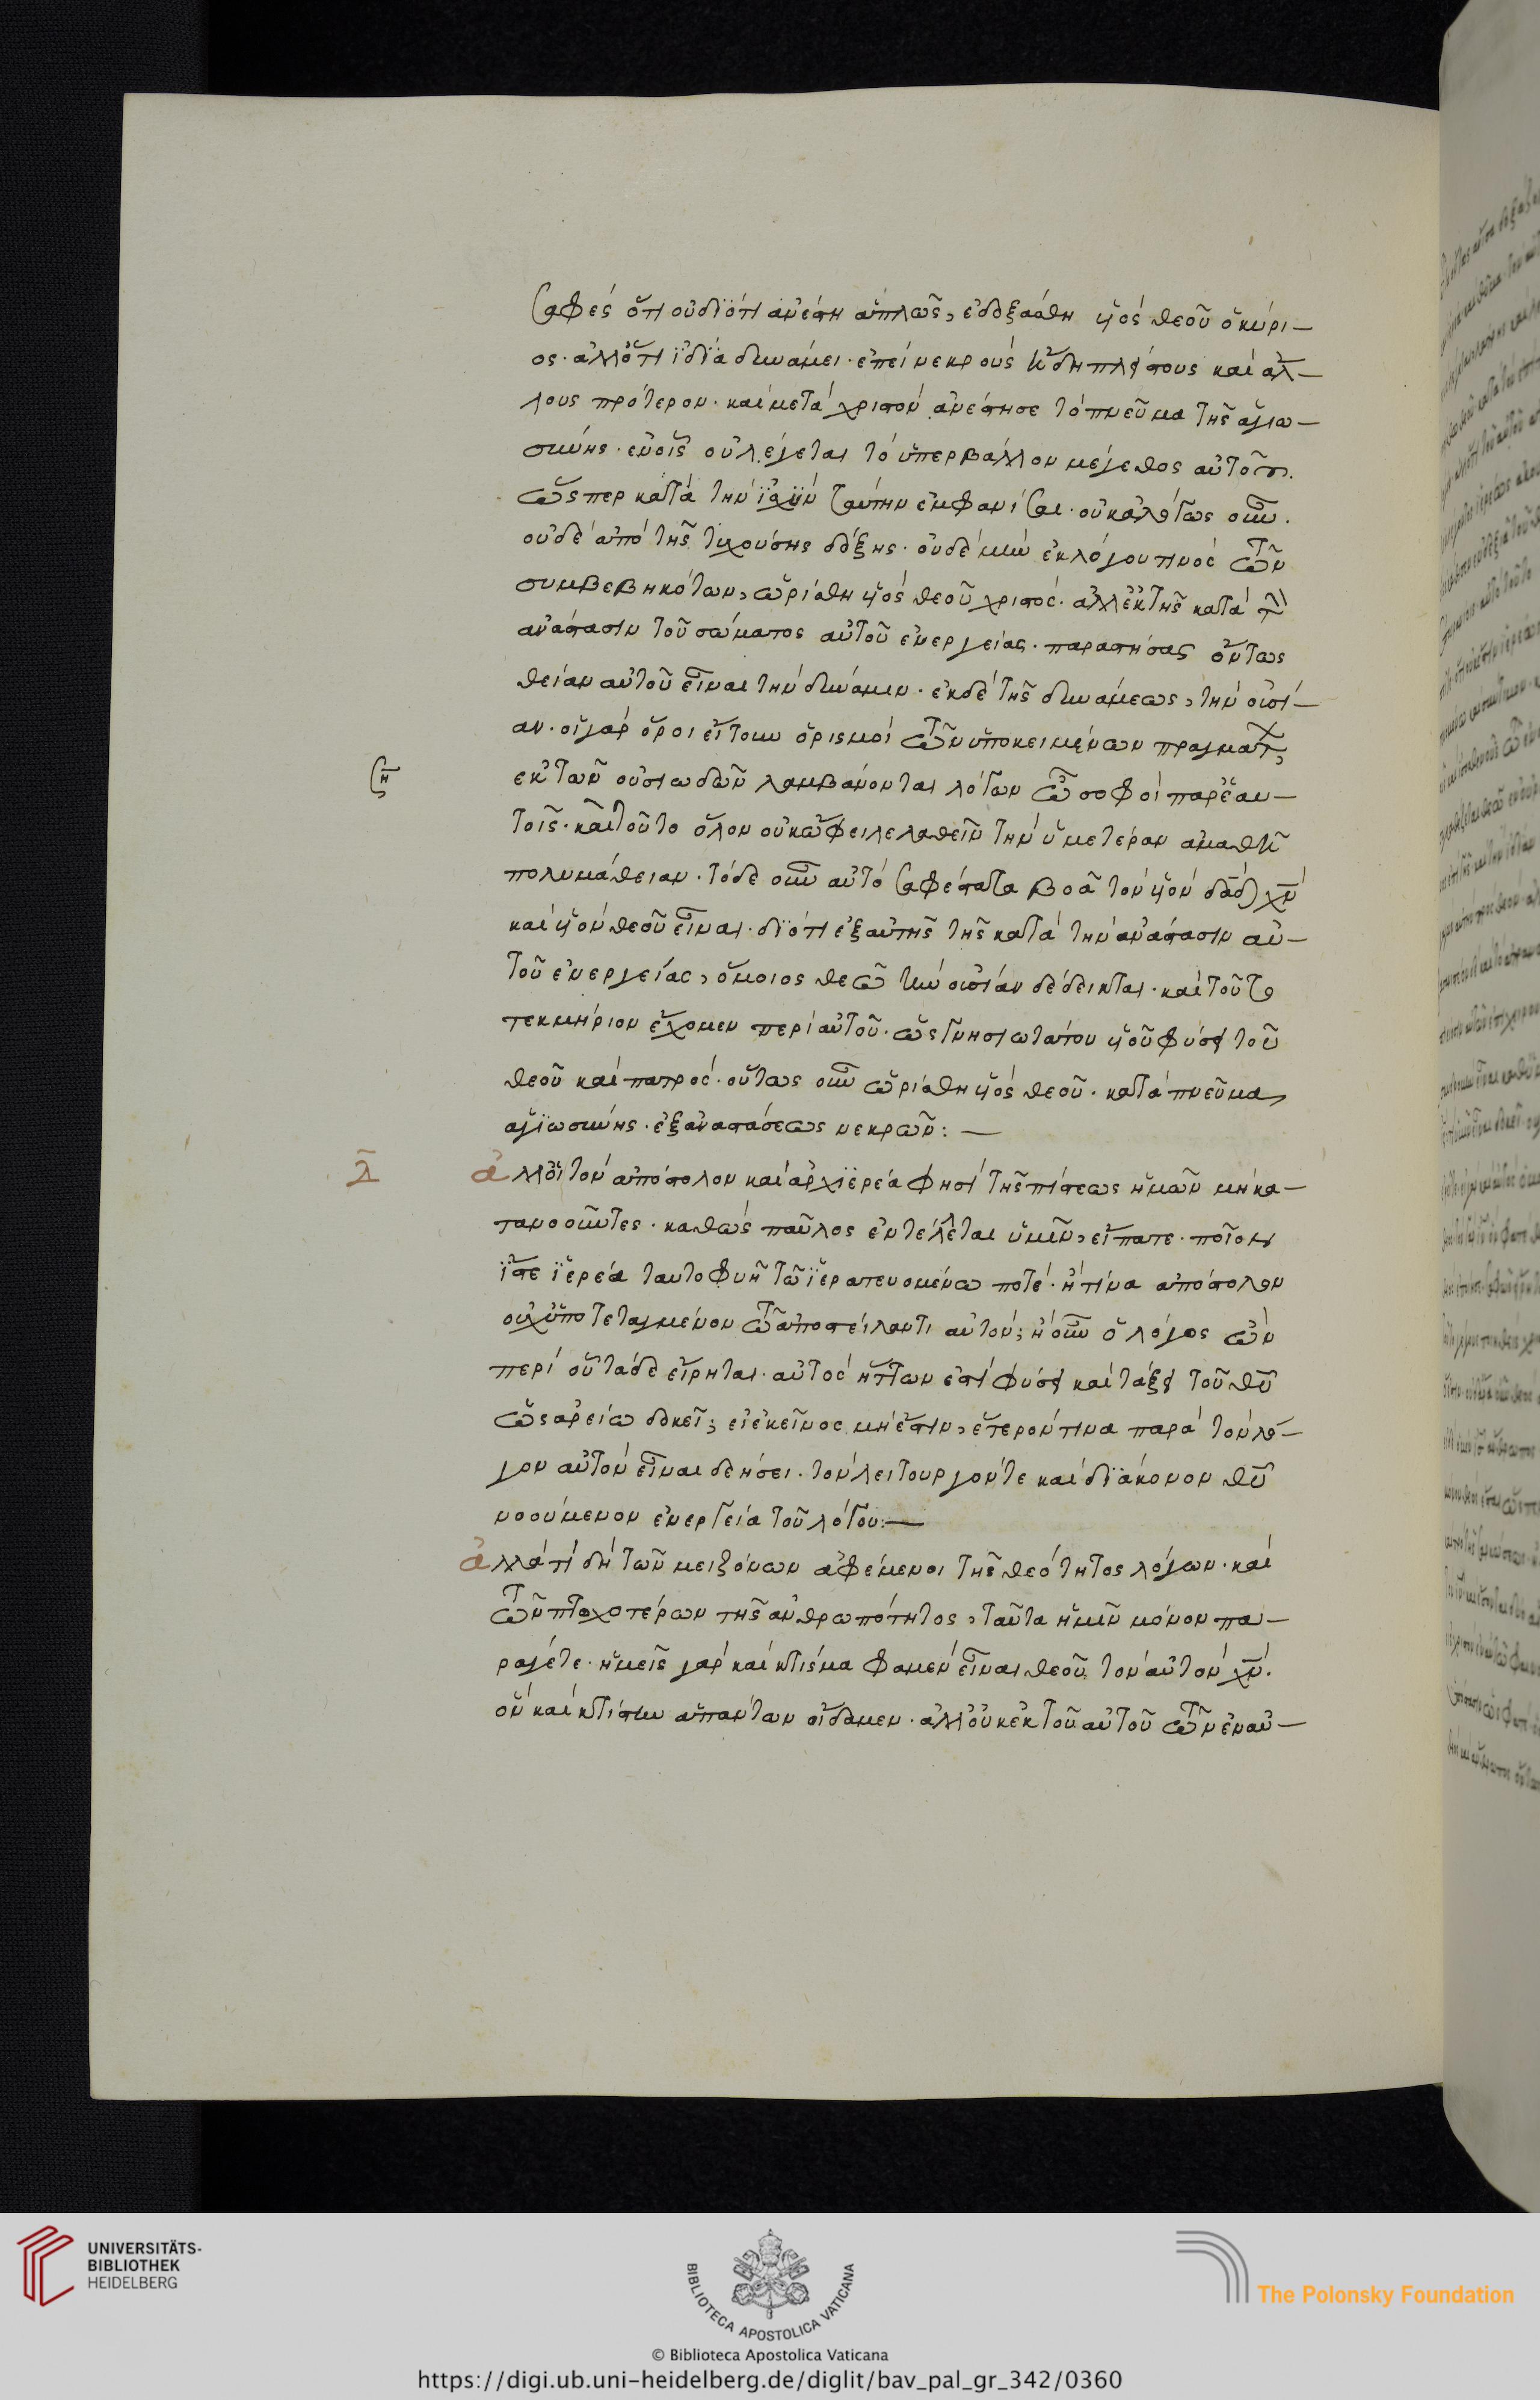 σαφὲς ὅτι οὐ διότι ἀνέστη ἁπλῶς, ἐδοξάσθη υἱὸς θεοῦ ὁ κύρι-
ος. ἀλλ' ὅτι ἰδία δυνάμει. ἐπεὶ νεκροὺς καὶ ἄλ-
λους πρότερον. καὶ μετὰ χριστὸν ἀνέστησε τὸ πνεῦμα τῆς ἁγιω-
σύνης. ἐν οἷς οὐ λέγεται τὸ ὑπερβάλλον μέγεθος αὐτοῦ.
ὥσπερ κατὰ τὴν ἰσχὺν ταύτην ἐμφανίσαι. οὐκ ἀλόγως οὖν.
οὐδὲ ἀπὸ τῆς τυχούσης δόξης. οὐδὲ μὴν ἐκ λόγου τινὸς τῶν
συμβεβηκότων, ὡρίσθη υἱὸς θεοῦ χριστός. ἀλλ' ἐκ τῆς κατὰ τὴν
ἀνάστασιν τοῦ σώματος αὐτοῦ ἐνεργείας. παραστήσας ὄντως
θείαν αὐτοῦ εἶναι τὴν δύναμιν. ἐκ δὲ τῆς δυνάμεως, τὴν οὐσί-
αν. οἱ γὰρ ὅροι ἤτουν ὁρισμοὶ τῶν ὑποκειμένων πραγμάτων,
ἐκ τῶν οὐσιωδῶν λαμβάνονται λόγων ὦ σοφοὶ παρ' ἑαυ-
τοῖς. καὶ τοῦτο ὅλον οὐκ ὤφειλε λαθεῖν τὴν ὑμετέραν ἀμαθῆ
πολυμάθειαν. τόδε οὖν αὐτὸ σαφέστατα βοᾶ τὸν υἱὸν δαδ χν
καὶ υἱὸν θεοῦ εἶναι. διότι ἐξ αὐτῆς τῆς κατὰ τὴν ἀνάστασιν αὐ-
τοῦ ἐνεργείας, ὅμοιος θεῶ τὴν οὐσίαν δέδεικται. καὶ τοῦτο
τεκμήριον ἔχομεν περὶ αὐτοῦ. ὡς γνησιωτάτου υἱοῦ φύσει τοῦ
θεοῦ καὶ πατρός. οὕτως οὖν ὡρίσθη υἱὸς θεοῦ. κατὰ πνεῦμα,
ἁγιωσύνης. ἐξ ἀναστάσεως νεκρῶν: —
λ ἀλλ' ὅτι τὸν ἀπόστολον καὶ ἀρχιερέα φησὶ τῆς πίστεως ἡμῶν μὴ κα-
τανοοῦντες. καθὼς παῦλος ἐντέλλεται ὑμῖν, εἴπατε. ποῖον
ἴστε ἱερέα ταυτοφυῆ τῶ ἱερατευομένω ποτέ. ἢ τίνα ἀπόστολον
οὐχ ὑποτεταγμένον τῶ ἀποστείλαντι αὐτόν; ἢ οὖν ὁ λόγος ὢν
περὶ οὗ τάδε εἴρηται. αὐτὸς ἥττων ἐστὶ φύσει καὶ τάξει τοῦ θυ
ὡς ἀρείω δοκεῖ; εἰ ἐκεῖνος μή ἐστιν, ἕτερόν τινα παρὰ τὸν λό-
γον αὐτὸν εἶναι δεήσει. τὸν λειτουργόν τε καὶ διάκονον θυ
νοούμενον ἐνεργεία τοῦ λόγου: —
ἀλλὰ τί δὴ τῶν μειζόνων ἀφέμενοι τῆς θεότητος λόγων. καὶ
τῶν πτωχοτέρων τῆς ἀνθρωπότητος, ταῦτα ἡμῖν μόνον πα-
ράγετε. ἡμεῖς γὰρ καὶ κτίσμα φαμὲν εἶναι θεοῦ τὸν αὐτὸν χν.
ὃν καὶ κτίστην ἁπάντων οἴδαμεν. ἀλλ' οὐκ ἐκ τοῦ αὐτοῦ τῶν ἐν αὐ-
UNIVERSITÄTS-
BIBLIOTHEK
HEIDELBERG
BIBLIOTECA APOSTOLICA VATICANA
The Polonsky Foundation
© Biblioteca Apostolica Vaticana
https://digi.ub.uni-heidelberg.de/diglit/bav_pal_gr_342/0360